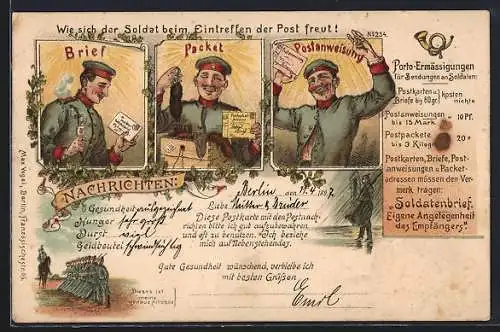 Wie sich der Soldat beim Eintreffen der Post freut!
No 234.
Brief
Packet
Postanweisung
Porto-Ermässigungen
für Sendungen an Soldaten:
Postkarten u.
Briefe bis 60 gr.
kosten
nichts
Postanweisungen
bis 15 Mark
= 10 Pf.
Postpackete
bis 3 Kilogr.
20 "
Postkarten, Briefe, Post-
anweisungen u. Packet-
adressen müssen den Ver-
merk tragen:
"Soldatenbrief.
Eigene Angelegenheit
des Empfängers."
NACHRICHTEN:
Berlin, den 11. 4. 1897
Gesundheit ausgezeichnet
Hunger sehr gross
Durst
Geldbeutel schwindsüchtig
Liebe Mutter & Brüder
Diese Postkarte mit den Postnach-
richten bitte ich gut aufzubewahren
und oft zu benützen. Ich beziehe
mich auf Nebenstehendes.
Gute Gesundheit wünschend, verbleibe ich
mit besten Grüßen
Emil
Dieses ist
meine
Max Vogel, Berlin, Französischestr. 16